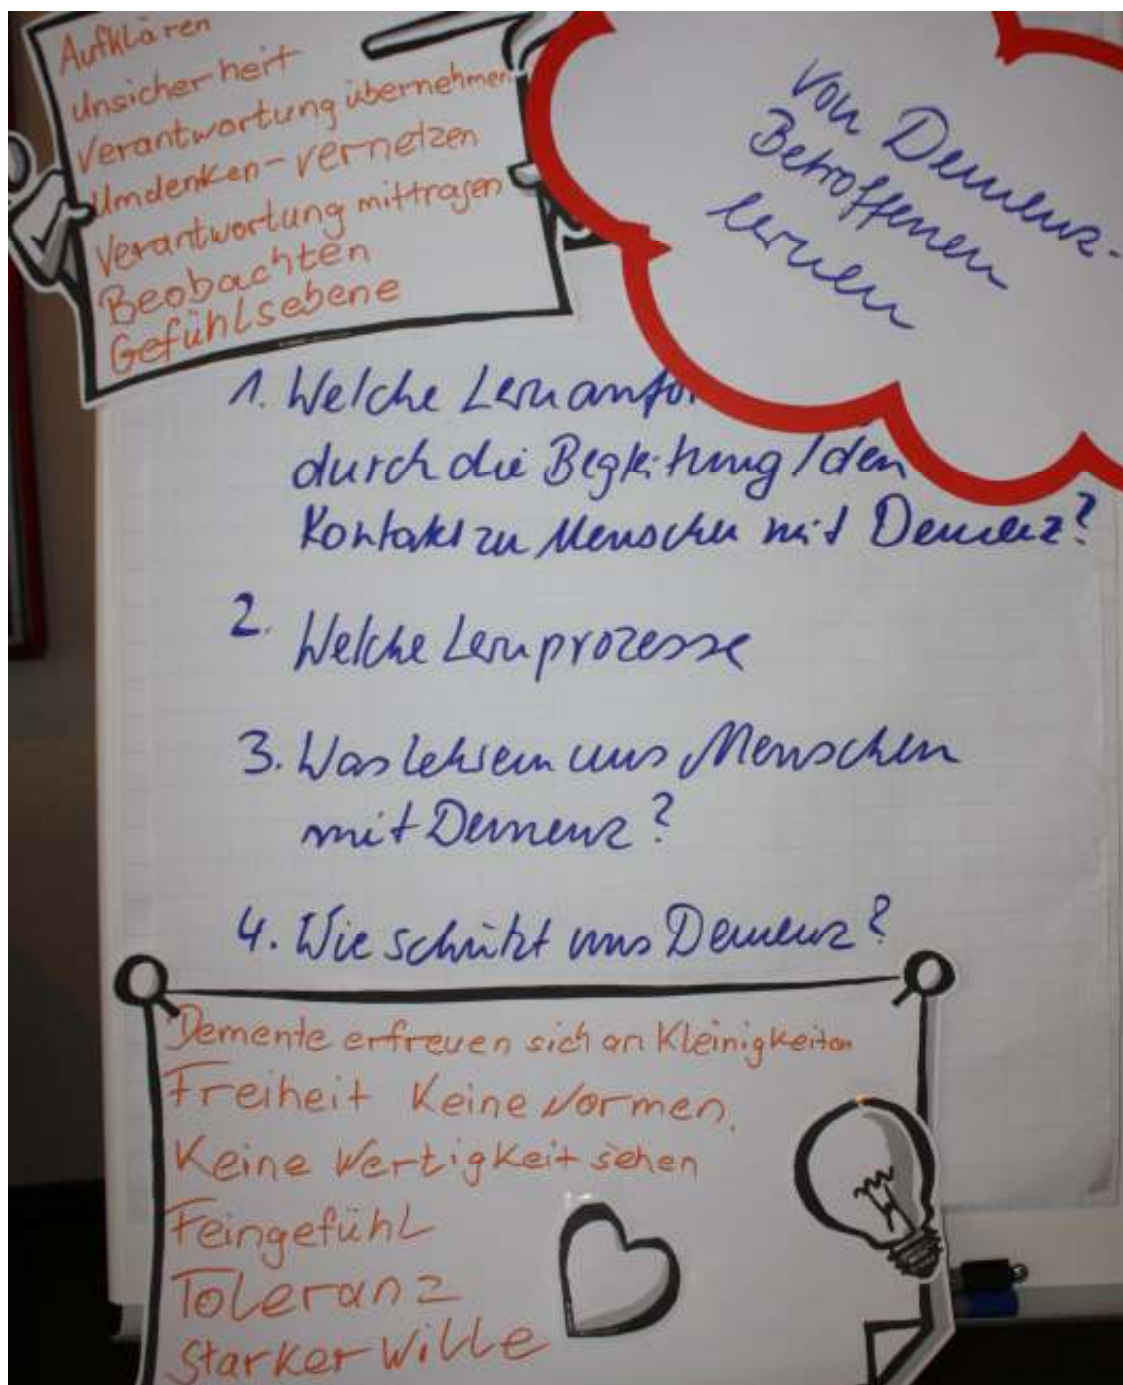 Aufklären
Unsicherheit
Verantwortung übernehmen
Umdenken-vernetzen
Verantwortung mittragen
Beobachten
Gefühlsebene
Von Demenz-
Betroffenen
lernen
1. Welche Lernanfo
durch die Begleitung / den
Kontakt zu Menschen mit Demenz?
2. Welche Lernprozesse
3. Was lehren uns Menschen
mit Demenz?
4. Wie schützt uns Demenz?
Demente erfreuen sich an Kleinigkeiten
Freiheit Keine Normen.
Keine Wertigkeit sehen
Feingefühl
Toleranz
Starker Wille